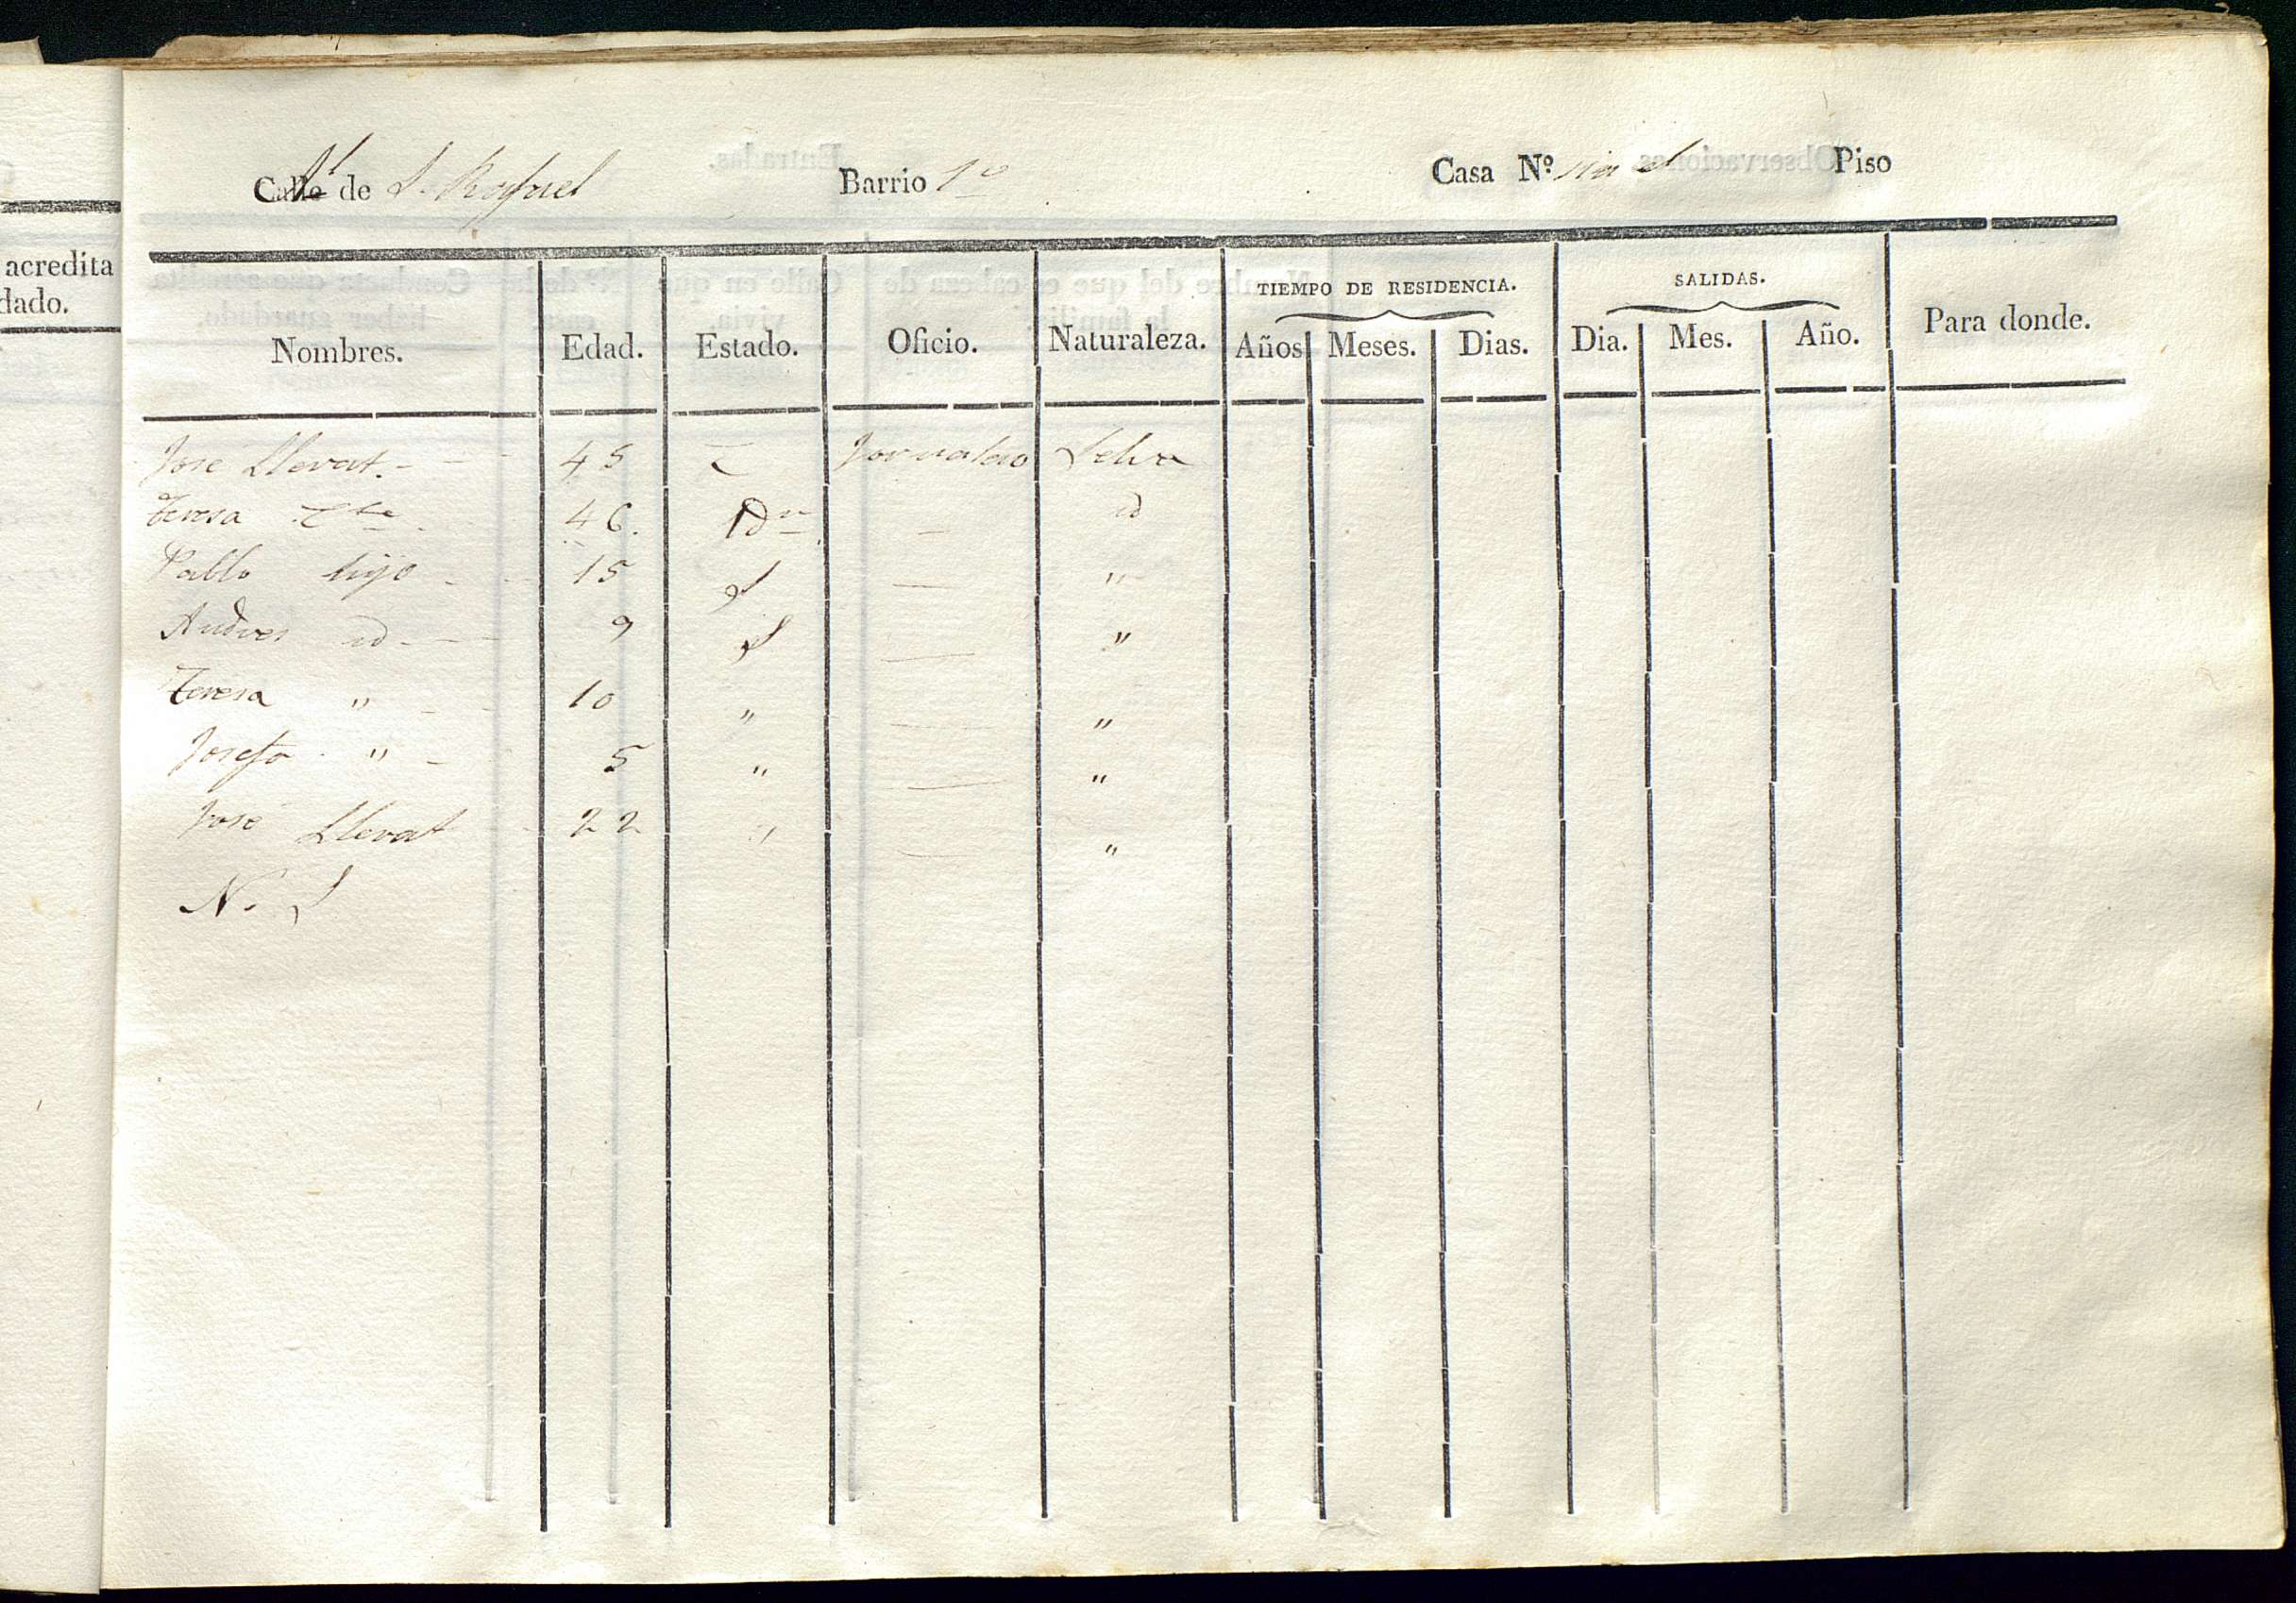 acredita
dado.
Calle de S. Rafael Barrio 1º Casa Nº sin el Piso
Nombres. Edad. Estado. Oficio. Naturaleza. TIEMPO DE RESIDENCIA. Años Meses. Dias. SALIDAS. Dia. Mes. Año. Para donde.
Jose Llevat. - - 45 C Jornalero Selva
Teresa 46. Idm — id
Pablo hijo - 15 S — "
Andres id - 9 S — "
Teresa " - 10 " — "
Josefa " - 5 " — "
Jose Llevat 22 " — "
N. S